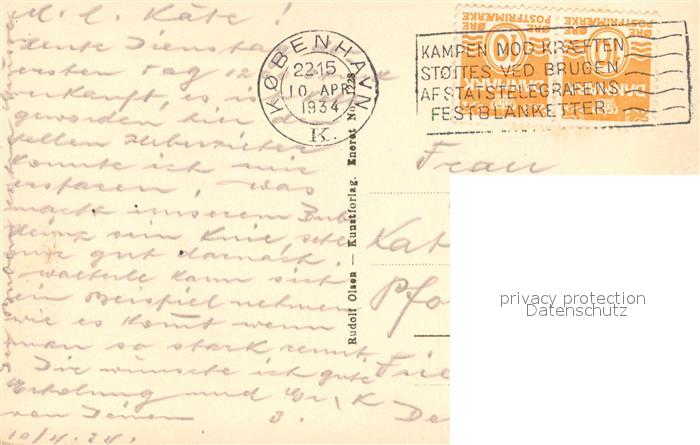 M. l. Käte!
heute Dienstag
ersten Tag 12
verkauft, es is
geworden hier d
tellen Ueberzieher
konnte ich mir
ersparen, was
macht unserem Bub
denk sein Knie, sehe
nur gut darnach
Walterle kann sich
ein Beispiel nehmen
wie es kommt wenn
man so stark rennt
Dir wünsche ich gute
Erholung und Gr. u. K
von Deinem J.
10/4.34.
KØBENHAVN
22-15
10 APR
1934
K.
KAMPEN MOD KRÆFTEN
STØTTES VED BRUGEN
AF STATSTELEGRAFENS
FESTBLANKETTER
POSTFRIMÆRKE
ØRE 10 ØRE
DANMARK
POSTFRIMÆRKE
ØRE 10 ØRE
DANMARK
Rudolf Olsen — Kunstforlag. Eneret No. 1228
Frau
Kät
Pfo
Frie
De
privacy protection
Datenschutz